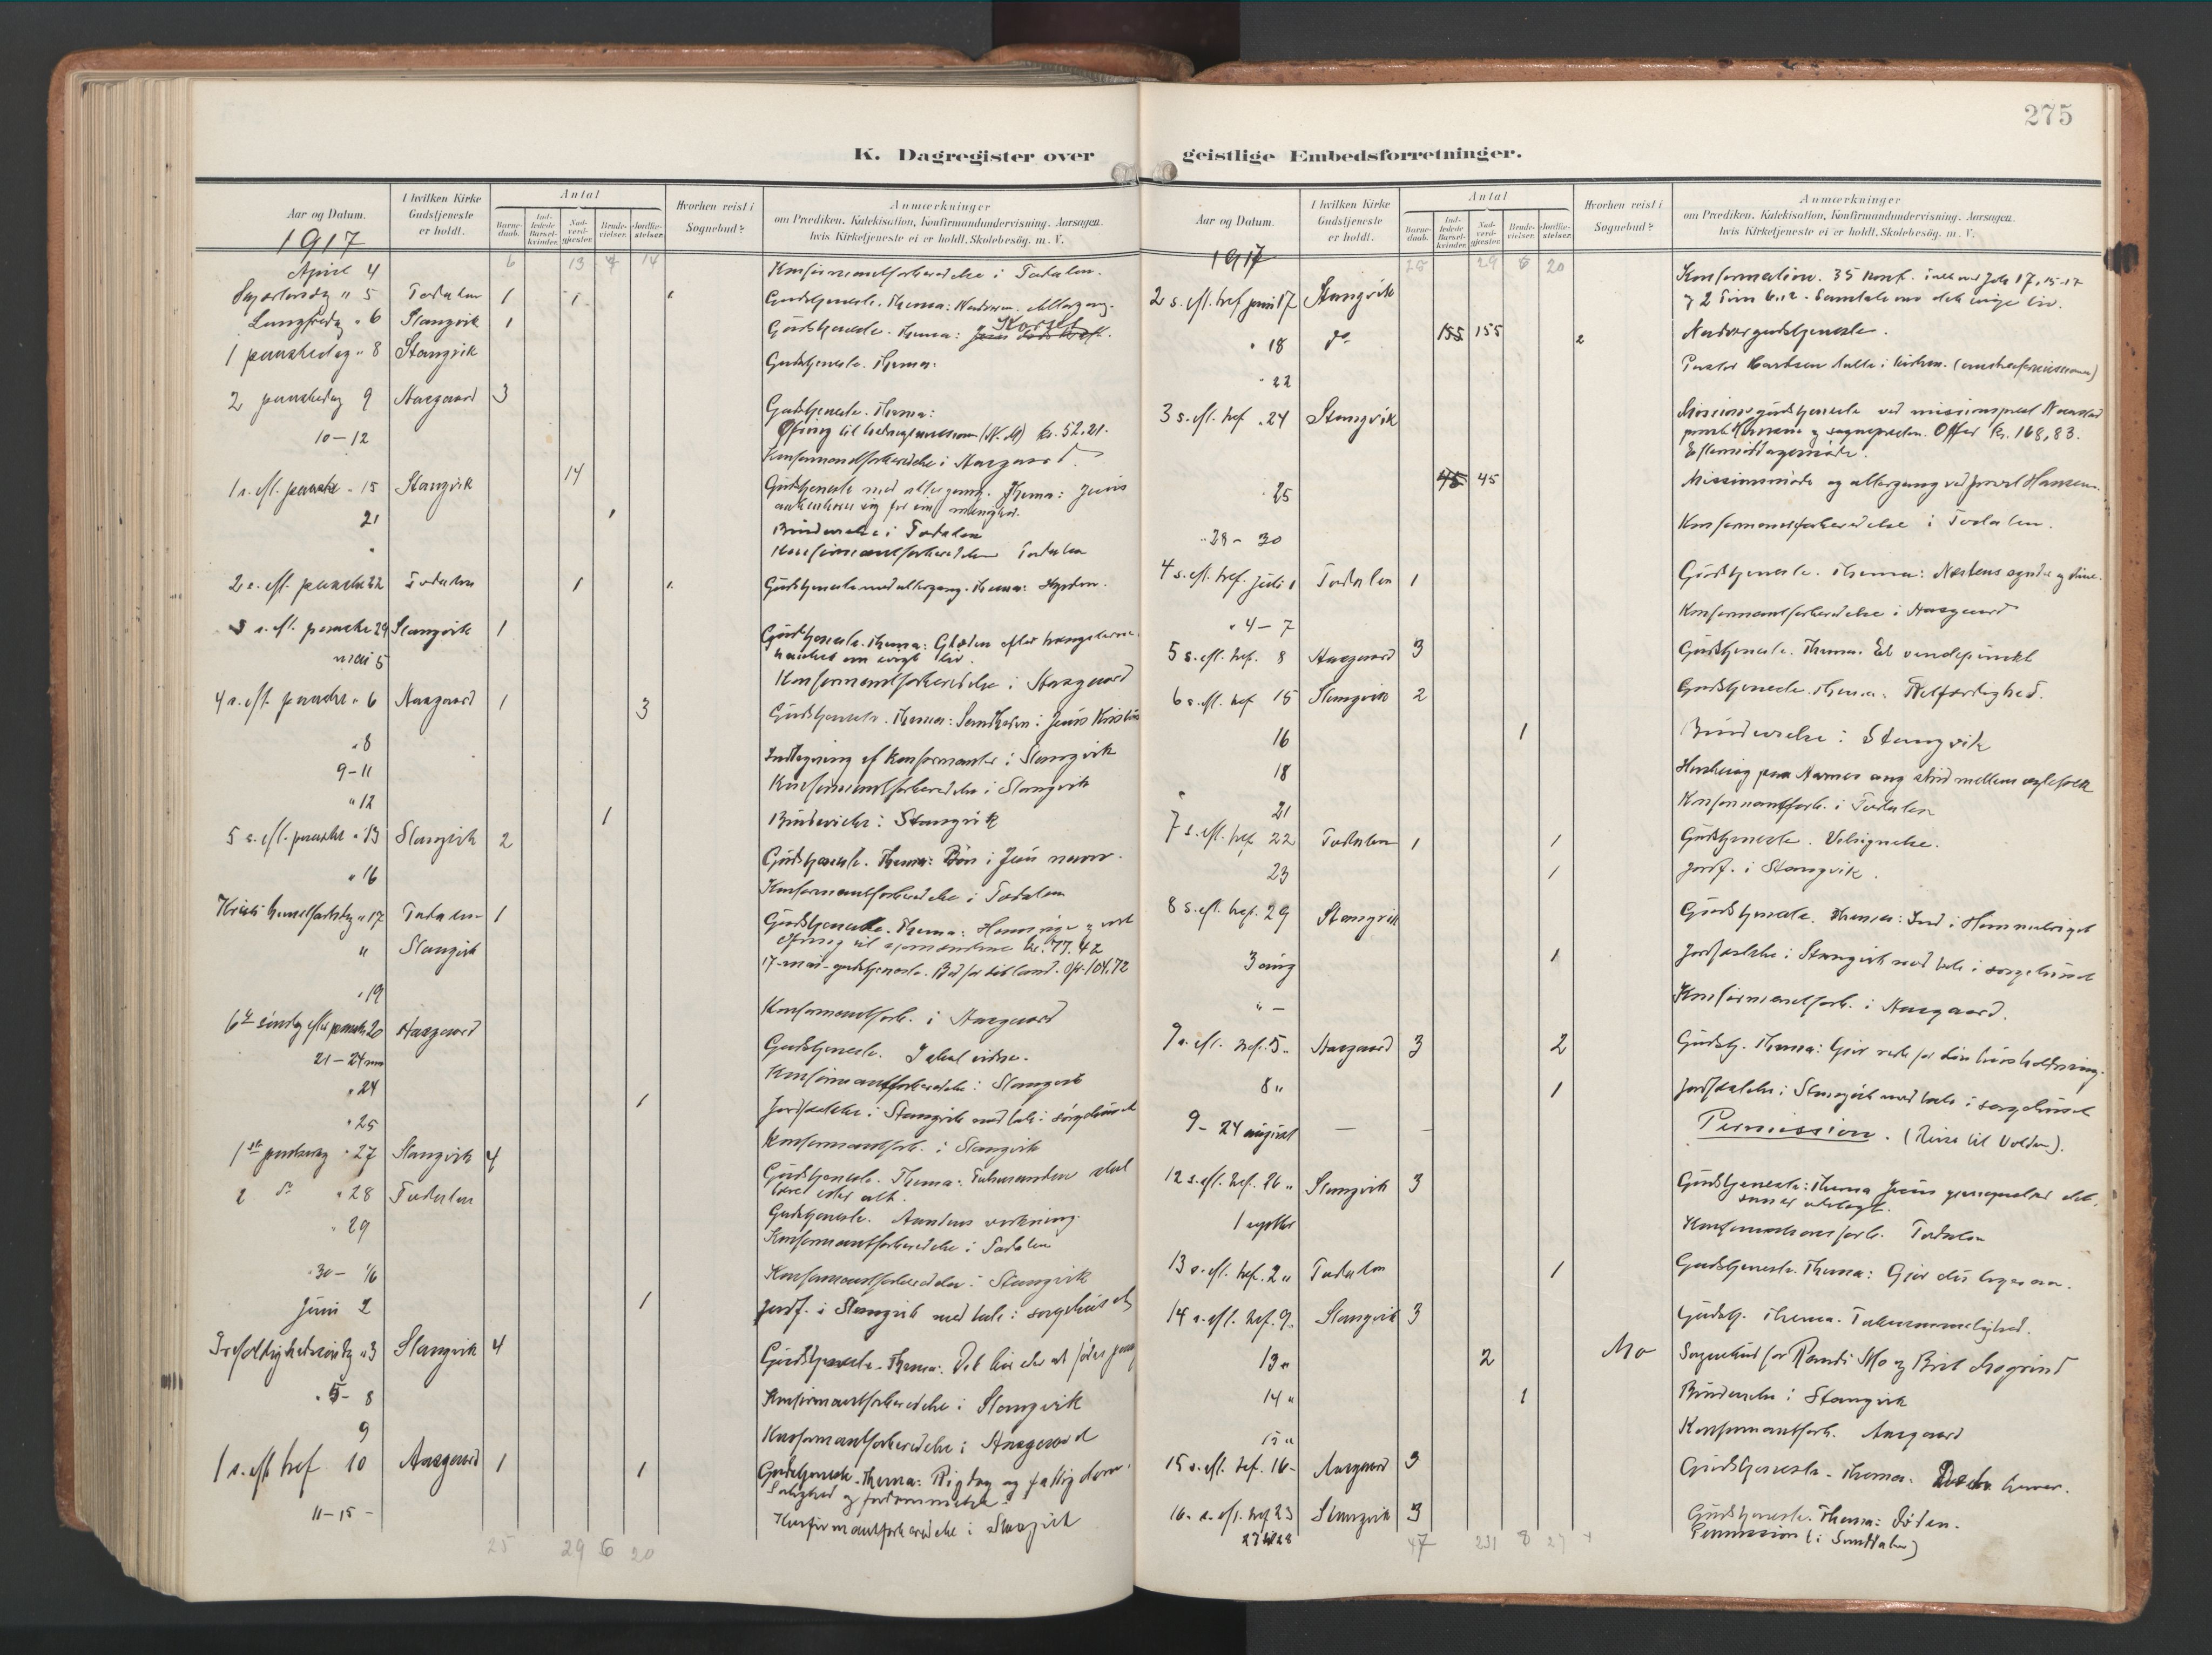 275
K. Dagregister over geistlige Embedsforretninger.
Aar og Datum.
I hvilken Kirke Gudstjeneste er holdt.
Antal
Barne-daab.
Ind-ledede Barsel-kvinder.
Nad-verd-gjester.
Brude-vielser.
Jordfæ-stelser.
Hvorhen reist i Sognebud?
Anmærkninger
om Prædiken, Katekisation, Konfirmandundervisning, Aarsagen,
hvis Kirketjeneste ei er holdt, Skolebesög, m. V.
1917
6 13 4 14
April 4 Konfirmantforberedelse i Todalen.
Skjærtorsdag " 5 Todalen 1 1 Gudstjeneste. Thema: Nadveren. Altergang.
Langfredag " 6 Stangvik 1 Gudstjeneste. Thema: Korset
1 paaskedag " 8 Stangvik Gudstjeneste. Thema:
2 paaskedag 9 Aasgaard 3 Gudstjeneste. Thema:
Ofring til (N. M) kr. 52.21.
10-12 Konfirmantforberedelse i Aasgaard
1 s. eft. paaske " 15 Stangvik 14 Gudstjeneste med altergang. Thema: Jesus
sig for sin menighet.
21 1 Brudevielse i Todalen
" Konfirmantforberedelse Todalen
2 s. eft. paaske 22 Todalen 1 Gudstjeneste med altergang. Thema: Hyrden.
3 s. eft. paaske 29 Stangvik 1 Gudstjeneste. Thema: Glæden efter trængslerne
om evigt liv.
mai 5 Konfirmantforberedelse i Aasgaard
4 s. eft. paaske " 6 Aasgaard 1 3 Gudstjeneste. Thema: Sandheden i Jesus Kristus
" 8 Indtegning af Konfirmanter i Stangvik
9-11 Konfirmantforberedelse i Stangvik
" 12 1 Brudevielse i Stangvik
5 s. eft. paaske " 13 Stangvik 2 Gudstjeneste. Thema: Bøn i Jesu navn.
" 16 Konfirmantforberedelse i Todalen
Kristi himmelfartsdag " 17 Todalen 1 Gudstjeneste. Thema:
Ofring til sjømændene kr. 77.42
" Stangvik 17-mai-gudstjeneste. Bed for dit land. Ofr. 104,72
" 19 Konfirmantforb. i Aasgaard
6te søndag efter paaske 20 Aasgaard Gudstjeneste. I skal vidne.
21-24 Konfirmantforberedelse i Stangvik
" 24 1 Jordfæstelse i Stangvik med tale i sørgehuset
" 25 Konfirmantforb. i Stangvik
1ste pinsedag " 27 Stangvik 4 Gudstjeneste. Thema: Talsmanden skal
lære eder alt.
2 do " 28 Todalen Gudstjeneste. Aandens virkning.
" 29 Konfirmantforberedelse i Todalen
" 30 - 1/6 Konfirmantforberedelse i Stangvik
Juni 2 1 Jordf. i Stangvik med tale i sørgehuset
Trefoldighedssøndag " 3 Stangvik 4 Gudstjeneste. Thema: Det
" 5- 8 Konfirmantforberedelse i Stangvik
9 Konfirmantforberedelse i Aasgaard
1 s. eft tref. 10 Aasgaard 1 1 Gudstjeneste. Thema: Rigdom og fattigdom
Salighed og fordømmelse.
11-15 - Konfirmantforberedelse i Stangvik
25 29 6 20
Aar og Datum.
I hvilken Kirke Gudstjeneste er holdt.
Antal
Barne-daab.
Ind-ledede Barsel-kvinder.
Nad-verd-gjester.
Brude-vielser.
Jordfæ-stelser.
Hvorhen reist i Sognebud?
Anmærkninger
om Prædiken, Katekisation, Konfirmandundervisning, Aarsagen,
hvis Kirketjeneste ei er holdt, Skolebesög, m. V.
1917
25 29 6 20
2 s. eft. tref juni 17 Stangvik Konfirmation. 35 konf. Joh 17, 15-17
og 2 Tim 6.12. Samtale om det evige liv.
" 18 do 155 155 2 Nadvergudstjeneste.
" 22 Pastor talte i kirken.
3 s. eft. tref. " 24 Stangvik Missionsgudstjeneste ved missionsprest
og sognepresten. Offer kr. 168,83.
Eftermiddagsmøde.
" 25 45 45 Missionsmøde og altergang ved provst Hansen.
" 28 - 30 Konfirmantforberedelse i Todalen.
4 s. eft. tref. juli 1 Todalen 1 Gudstjeneste. Thema: Næstens synder og dine.
" 4 - 7 Konfirmantforberedelse i Aasgaard
5 s. eft. tref. 8 Aasgaard 3 Gudstjeneste. Thema: Et vendepunkt
6 s. eft. tref 15 Stangvik 2 Gudstjeneste. Thema: Retfærdighed.
16 1 Brudevielse i Stangvik
18 Husbesøg paa ang. strid mellem egtefolk
21 Konfirmantforb. i Todalen
7 s. eft. tref 22 Todalen 1 1 Gudstjeneste. Velsignelse.
23 1 Jordf. i Stangvik.
8 s. eft. tref. 29 Stangvik Gudstjeneste. Thema: Ind i Himmeriget
3 aug 1 Jordfæstelse i Stangvik med tale i sørgehuset
" - Konfirmantforb. i Aasgaard.
9 s. eft. tref. 5 " Aasgaard 3 2 Gudstj. Thema: Gjør rede for din husholdning.
8 " 1 Jordfæstelse i Stangvik med tale i sørgehuset
9 - 24 august — — Permission. (Reise til Volden).
12 s. eft. tref. 26 " Stangvik 3 Gudstjeneste: Thema Jesus
1 septbr Konfirmationsforb. Todalen
13 s. eft. tref. 2 " Todalen 1 Gudstjeneste. Thema: Gjør
14 s. eft. tref. 9 " Stangvik 3 Gudstj. Thema. Taknemmelighed.
13 " 2 Mo Sognebud for Randi Mo og Brit
14 " 1 Brudevielse i Stangvik
15 " Konfirmantforb. Aasgaard
15 s. eft. tref. 16 - Aasgaard 3 Gudstjeneste. Thema:
16 s. eft. tref 23 Stangvik 3 Gudstjeneste. Thema: Døden.
27 28 Permission (i Sunddalen)
47 231 8 27